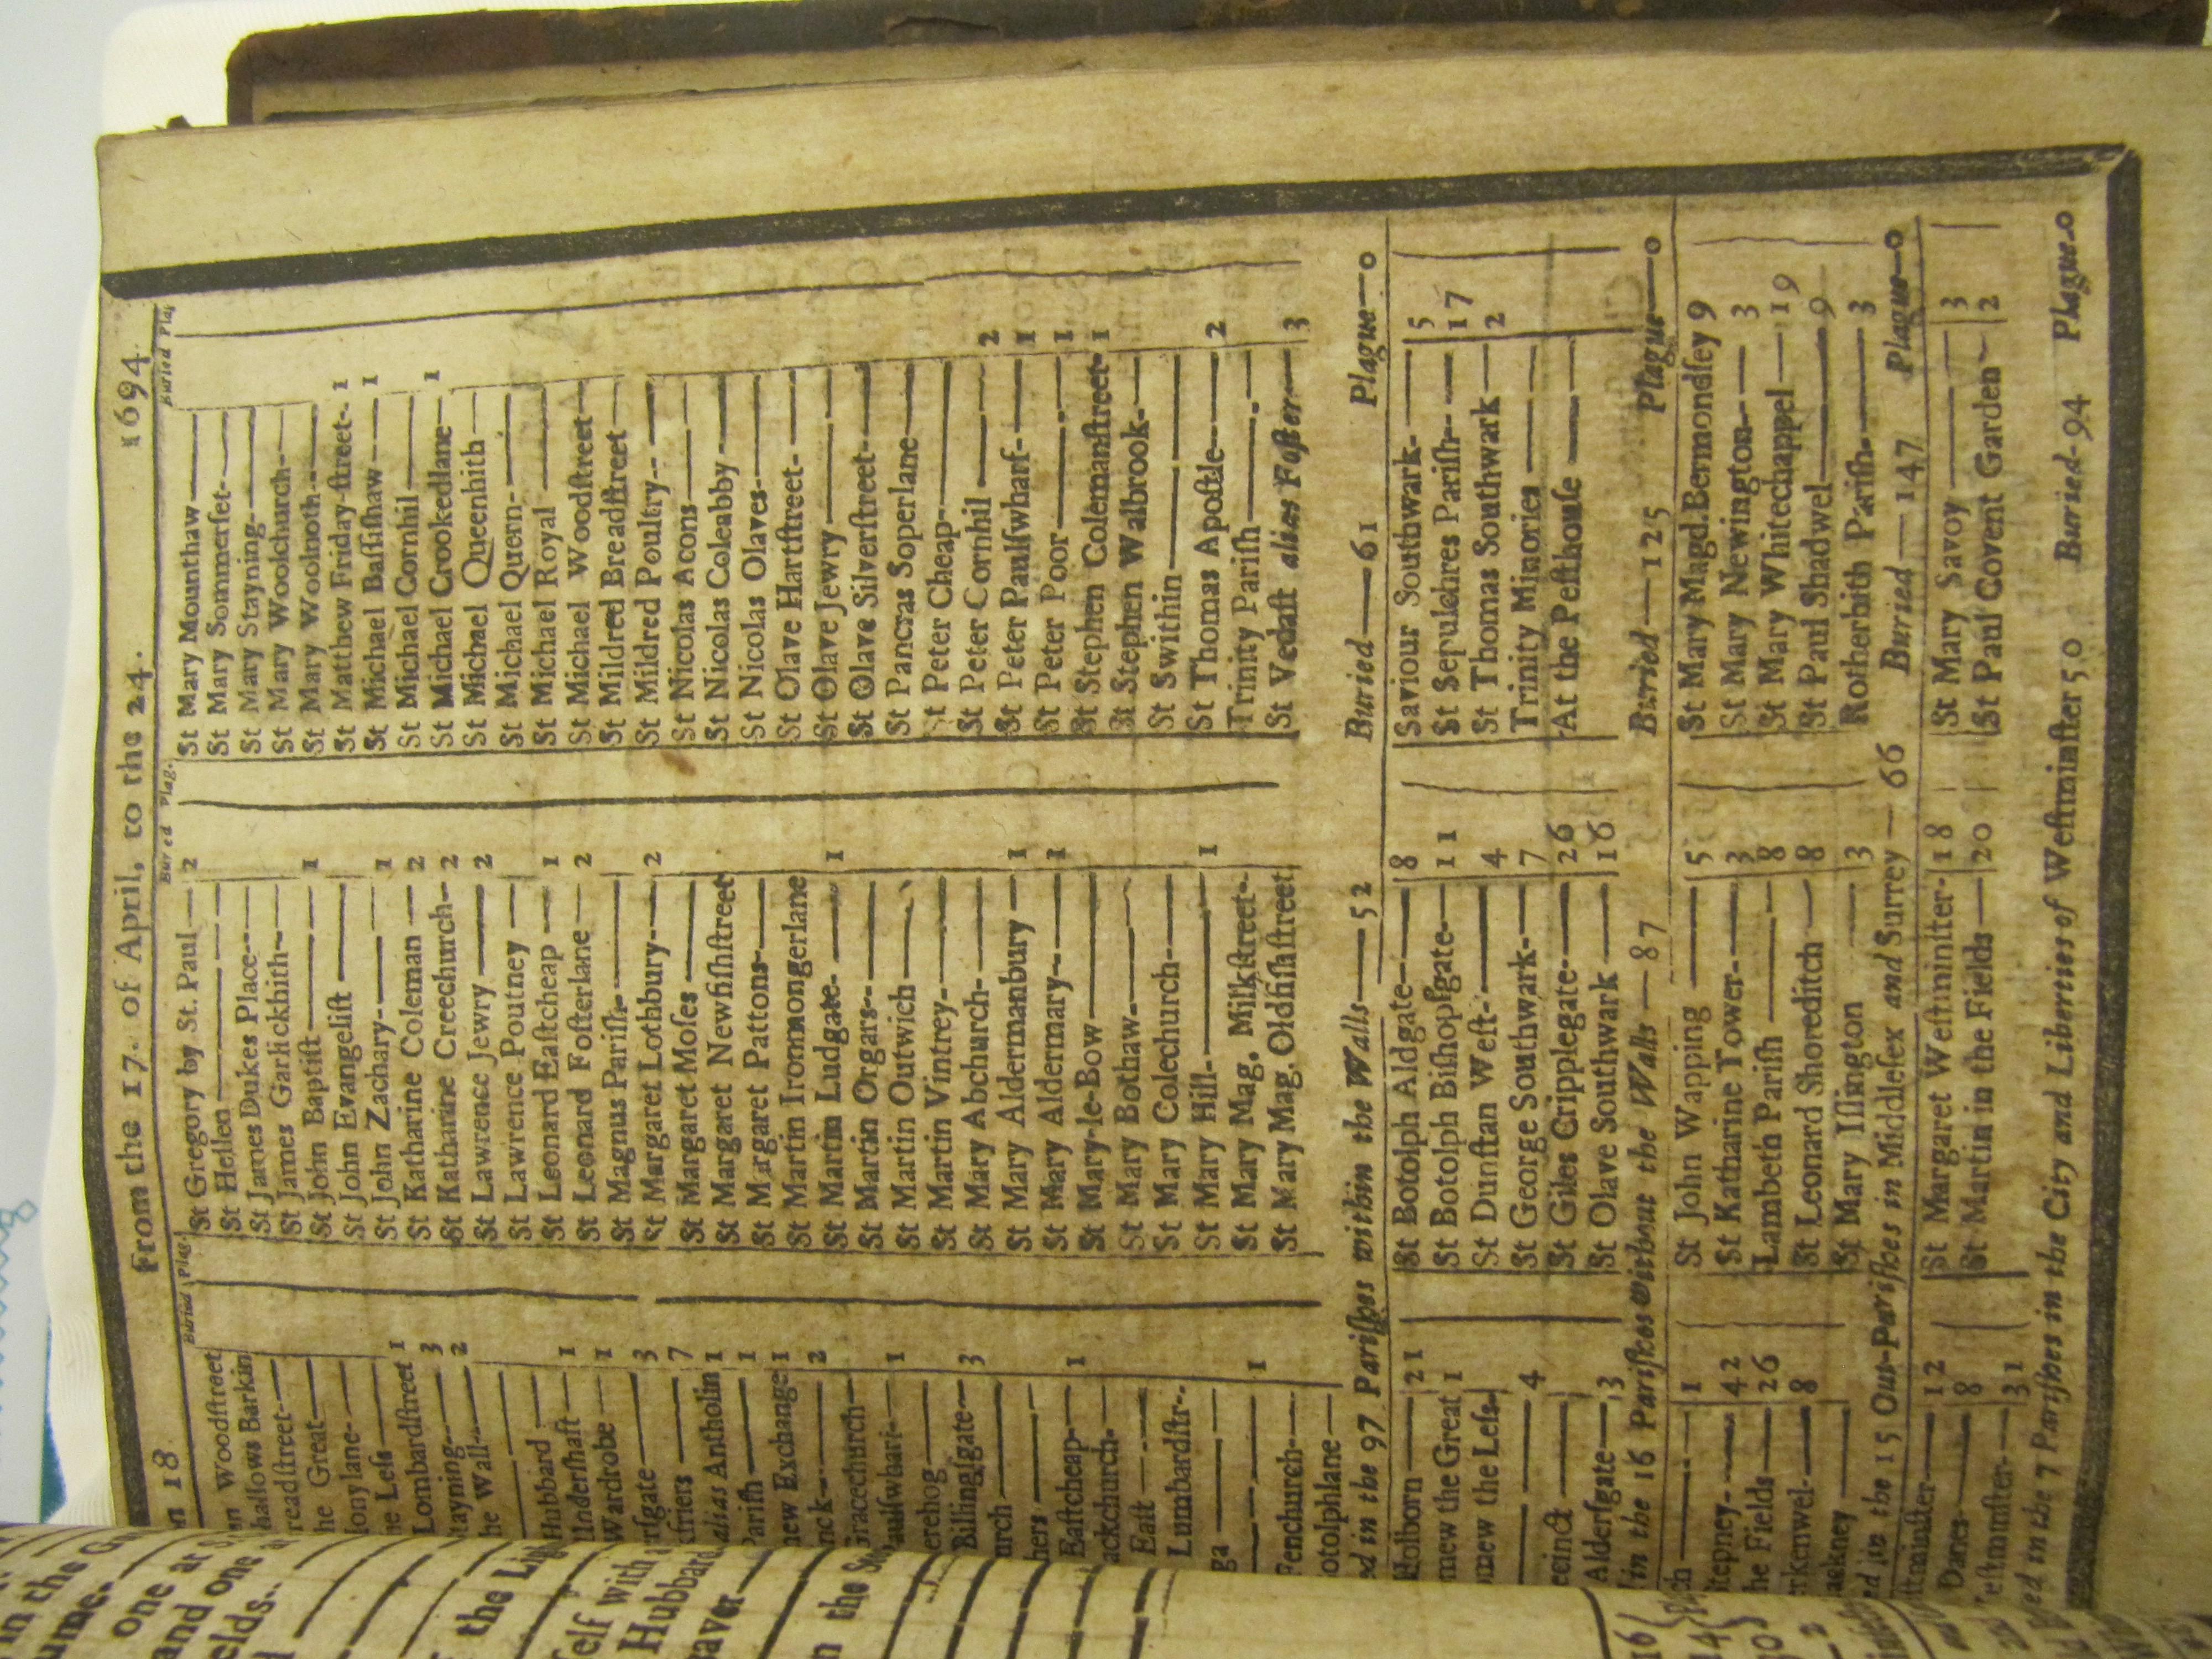 From the 17. of April, to the 24. 1694.
Buried Plag.
n Woodſtreet
hallows Barkin
readſtreet
he Great
onylane
e Leſs 1
Lombardſtreet 3
tayning 2
he Wall
Hubbard 1
Underſhaft 1
Wardrobe 3
rſgate 7
friers 1
alias Antholin 1
Pariſh 1
new Exchange 2
nck
Gracechurch 1
Paulſwharf
erehog 3
Billingſgate
urch
hers 1
Eaſtcheap
ackchurch
Eaſt
Lumbardſtr. 1
ga
Fenchurch
otolphlane
Bur ed Plag.
St Gregory by St. Paul 2
St Hellen
St James Dukes Place
St James Garlickhith
St John Baptiſt 1
St John Evangeliſt
St John Zachary 1
St Katharine Coleman 2
St Katharine Creechurch 2
St Lawrence Jewry 2
St Lawrence Poutney
St Leonard Eaſtcheap 1
St Leonard Foſterlane 2
St Magnus Pariſh
St Margaret Lothbury 2
St Margaret Moſes
St Margaret Newfiſhſtreet
St Margaret Pattons
St Martin Ironmongerlane
St Martin Ludgate 1
St Martin Orgars
St Martin Outwich
St Martin Vintrey
St Mary Abchurch
St Mary Aldermanbury 1
St Mary Aldermary 1
St Mary-le-Bow
St Mary Bothaw
St Mary Colechurch
St Mary Hill 1
St Mary Mag. Milkſtreet
St Mary Mag. Oldfiſhſtreet
Buried Plag
St Mary Mounthaw
St Mary Sommerſet
St Mary Stayning
St Mary Woolchurch
St Mary Woolnoth
St Matthew Friday-ſtreet 1
St Michael Baſſiſhaw 1
St Michael Cornhil
St Michael Crookedlane 1
St Michael Queenhith
St Michael Quern
St Michael Royal
St Michael Woodſtreet
St Mildred Breadſtreet
St Mildred Poultry
St Nicolas Acons
St Nicolas Coleabby
St Nicolas Olaves
St Olave Hartſtreet
St Olave Jewry
St Olave Silverſtreet
St Pancras Soperlane
St Peter Cheap
St Peter Cornhil 2
St Peter Paulſwharf 1
St Peter Poor 1
St Stephen Colemanſtreet 1
St Stephen Walbrook
St Swithin
St Thomas Apoſtle 2
Trinity Pariſh
St Vedaſt alias Foſter 3
ed in the 97 Pariſhes within the Walls 52 Buried 61 Plague 0
Holborn 21
mew the Great 1
mew the Leſs
4
Alderſgate 3
St Botolph Aldgate 8
St Botolph Biſhopſgate 11
St Dunſtan Weſt 4
St George Southwark 7
St Giles Cripplegate 26
St Olave Southwark 16
Saviour Southwark 5
St Sepulchres Pariſh 17
St Thomas Southwark 2
Trinity Minories
At the Peſthouſe
in the 16 Pariſhes without the Walls 87 Buried 125 Plague 0
ch 1
tepney 42
he Fields 26
rkenwel 8
ackney
St John Wapping 5
St Katharine Tower 3
Lambeth Pariſh 8
St Leonard Shoreditch 8
St Mary Iſlington 3
St Mary Magd. Bermondſey 9
St Mary Newington 3
St Mary Whitechappel 19
St Paul Shadwel 9
Rotherhith Pariſh 3
ed in the 15 Out-Pariſhes in Middleſex and Surrey 66 Buried 147 Plague 0
ſtminſter 12
Danes 8
eſtminſter 31
St Margaret Weſtminſter 18
St Martin in the Fields 20
St Mary Savoy 3
St Paul Covent Garden 2
ed in the 7 Pariſhes in the City and Liberties of Weſtminſter 50 Buried 94 Plague 0